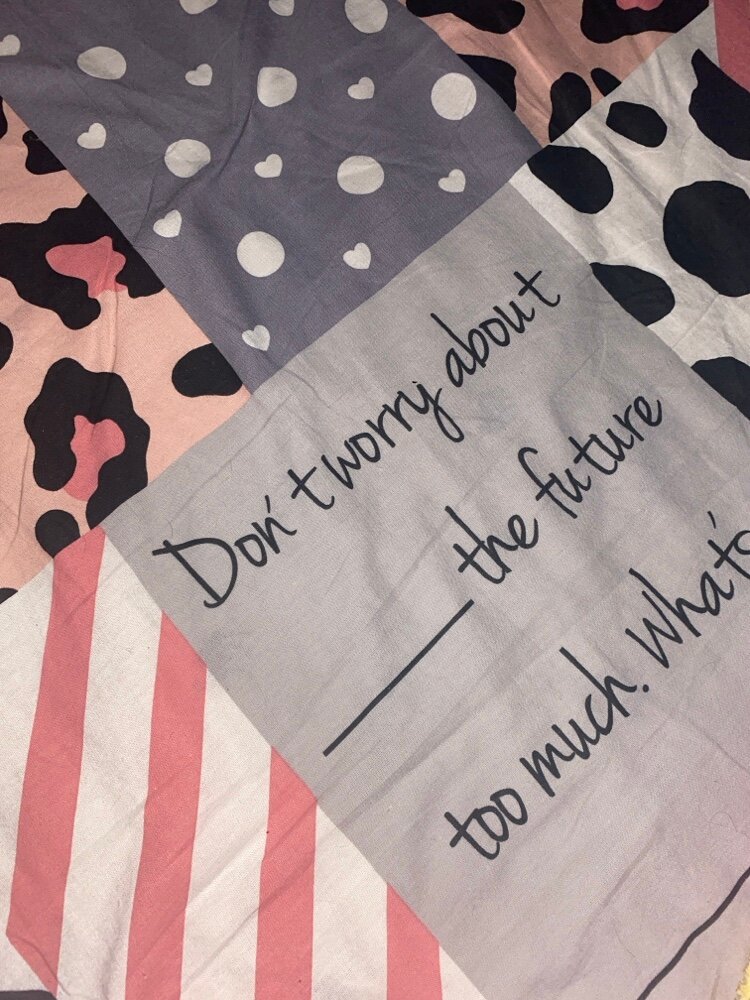 Don't worry about
the future
too much. What's